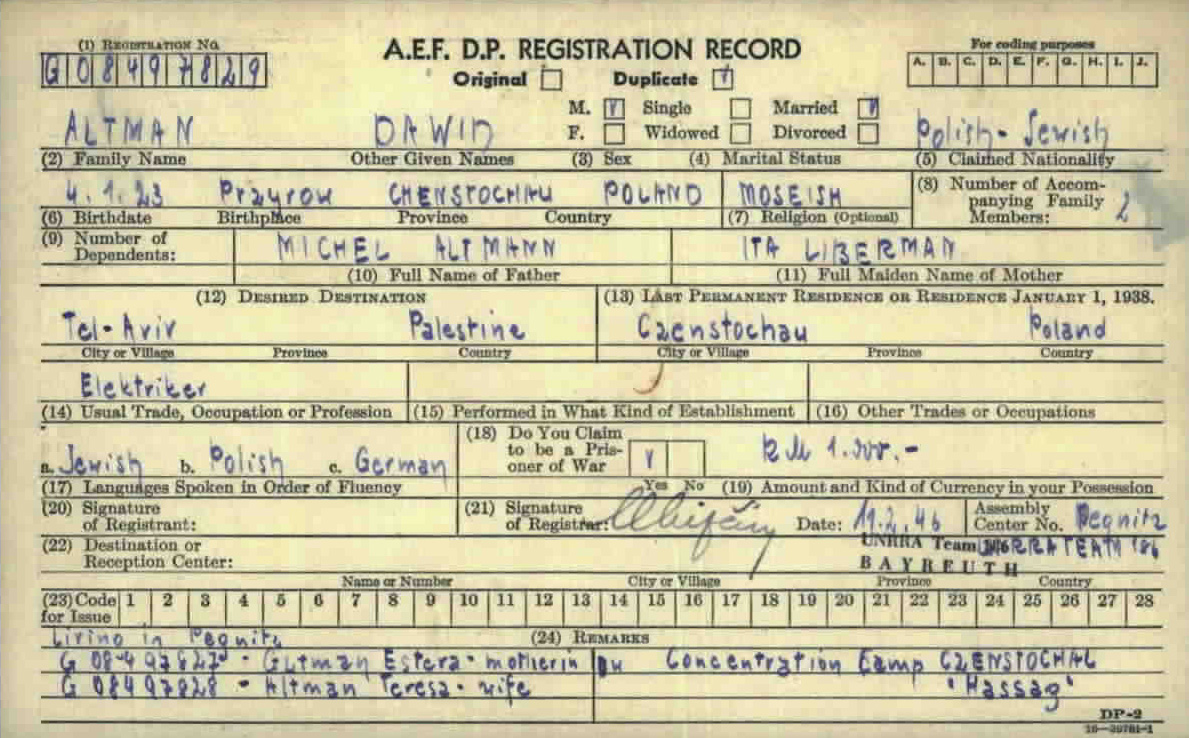 (1) REGISTRATION NO.
G08497829
A.E.F. D.P. REGISTRATION RECORD
Original Duplicate V
For coding purposes
A. B. C. D. E. F. G. H. I. J.
M. V Single Married V
F. Widowed Divorced
ALTMAN DAWID Polish-Jewish
(2) Family Name Other Given Names (3) Sex (4) Marital Status (5) Claimed Nationality
4.1.23 Przyrow CHENSTOCHAU POLAND MOSEISH
(6) Birthdate Birthplace Province Country (7) Religion (Optional)
(8) Number of Accom-
panying Family
Members: 2
(9) Number of
Dependents:
MICHEL ALTMANN ITA LIBERMAN
(10) Full Name of Father (11) Full Maiden Name of Mother
(12) DESIRED DESTINATION (13) LAST PERMANENT RESIDENCE OR RESIDENCE JANUARY 1, 1938.
Tel-Aviv Palestine Czenstochau Poland
City or Village Province Country City or Village Province Country
Elektriker
(14) Usual Trade, Occupation or Profession (15) Performed in What Kind of Establishment (16) Other Trades or Occupations
a. Jewish b. Polish c. German
(17) Languages Spoken in Order of Fluency
(18) Do You Claim
to be a Pris-
oner of War
V
Yes No
RM 1.000.-
(19) Amount and Kind of Currency in your Possession
(20) Signature
of Registrant:
(21) Signature
of Registrar:
Date: 19.2.46
Assembly
Center No. Pegnitz
UNRRA Team UNRRA TEAM 186
BAYREUTH
(22) Destination or
Reception Center:
Name or Number City or Village Province Country
(23) Code
for Issue
1 2 3 4 5 6 7 8 9 10 11 12 13 14 15 16 17 18 19 20 21 22 23 24 25 26 27 28
(24) REMARKS
Living in Pegnitz
G 08497827 - Gutman Estera - motherin Concentration Camp CZENSTOCHAU
G 08497828 - Altman Teresa - wife "Hassag"
DP-2
16-39781-1